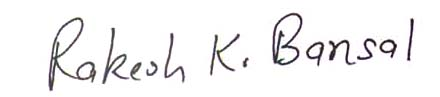 Rakesh K. Bansal